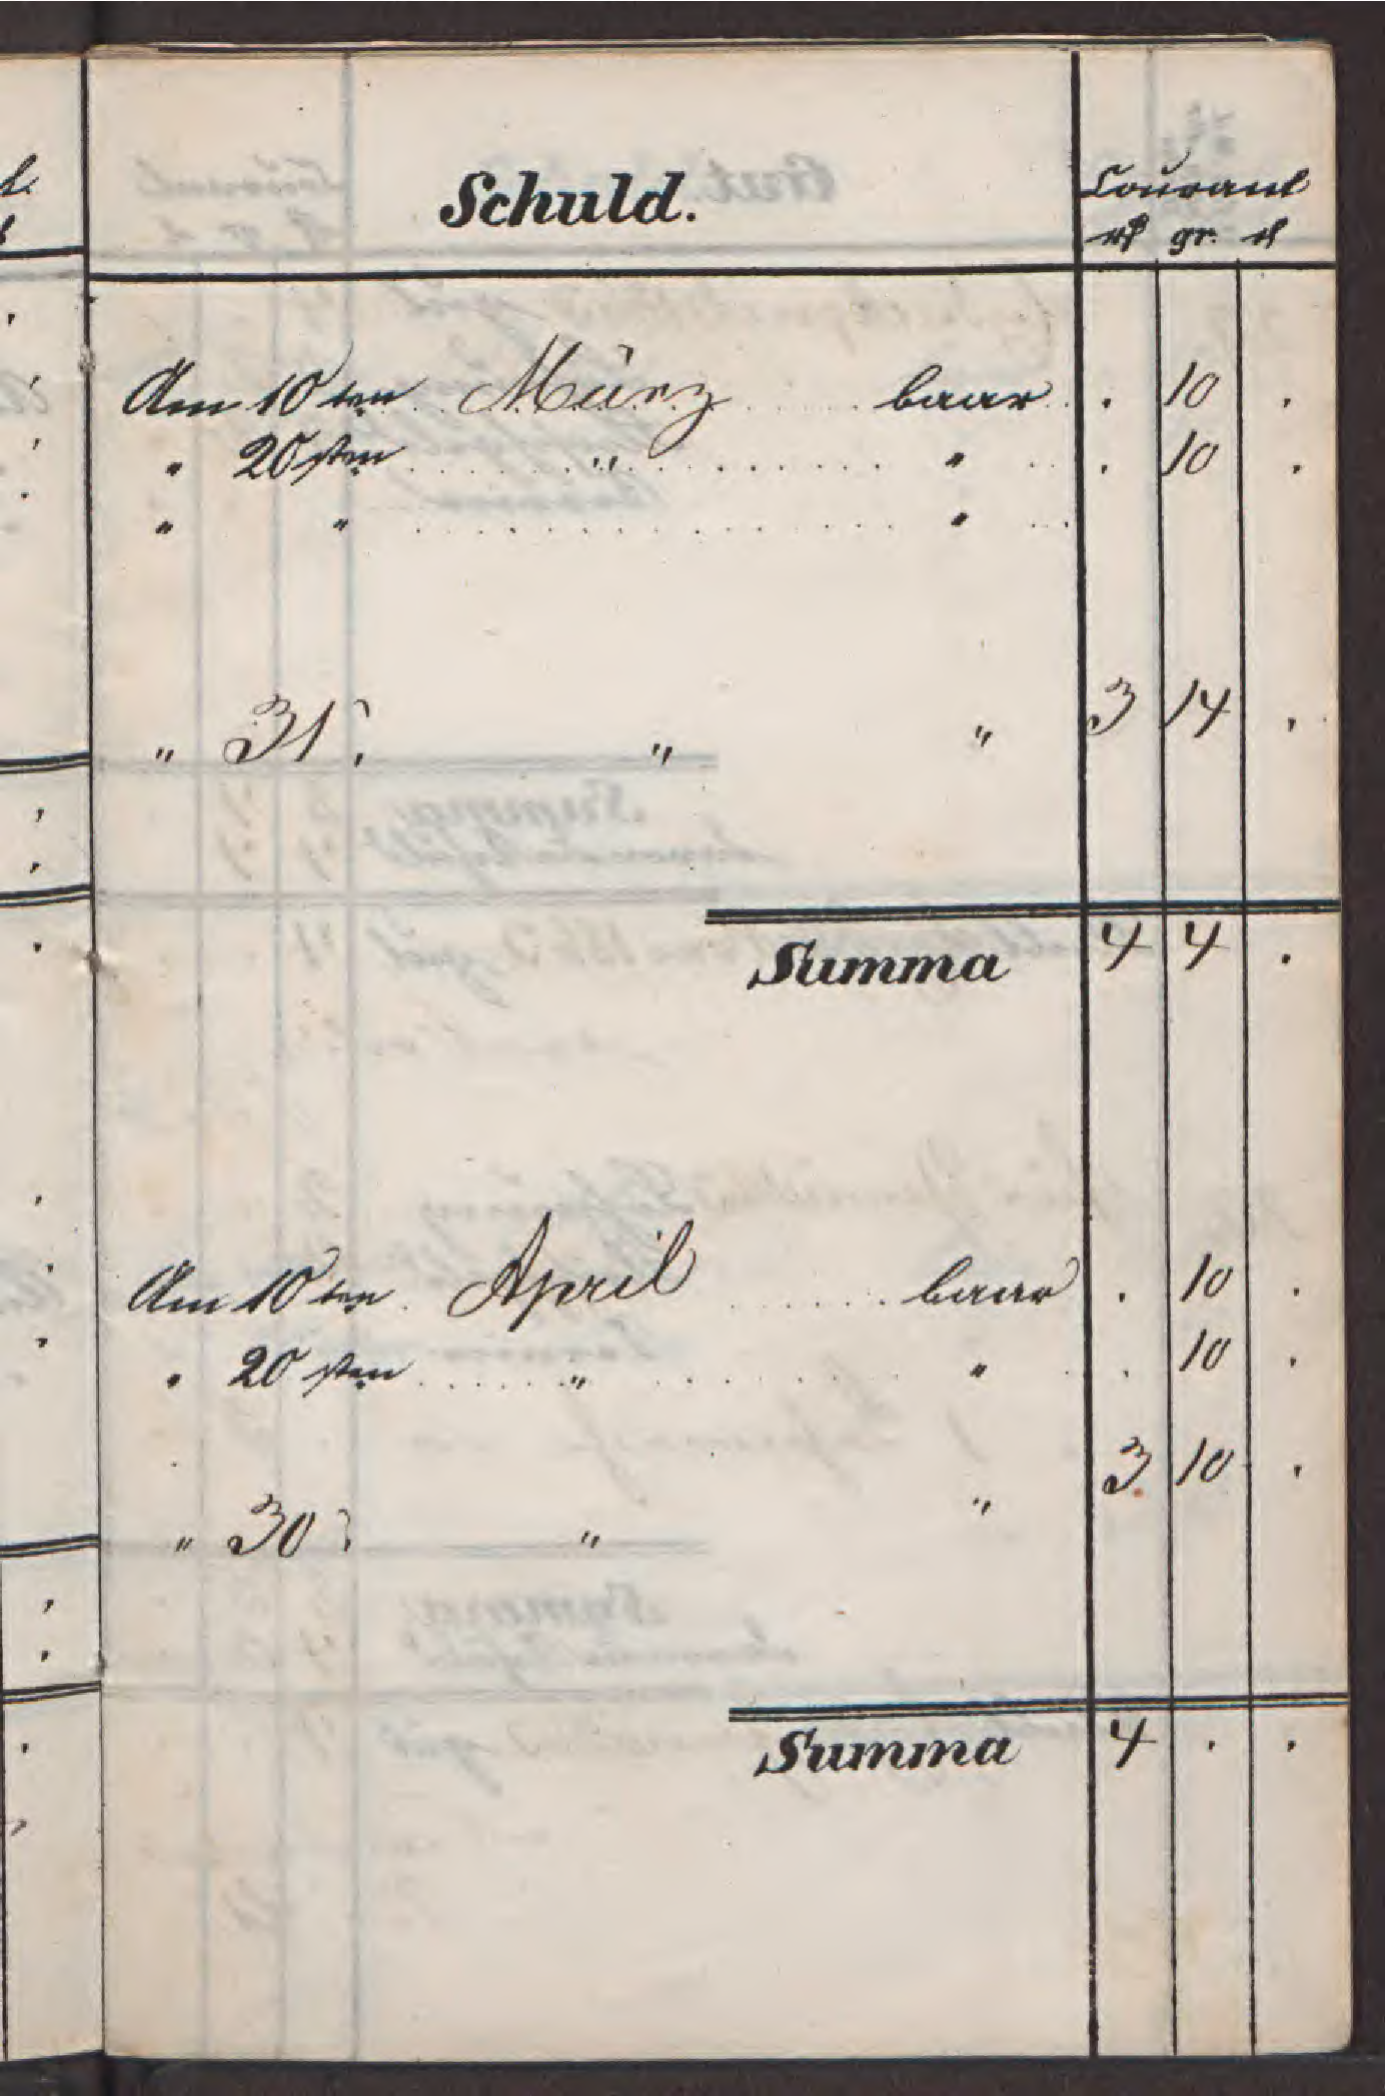 Schuld.
Courant
rf gr. d
Am 10ten März baar . 10 .
" 20sten " " . 10 .
" " "
" 31. " " 3 14 .
Summa 4 4 .
Am 10ten April baar . 10 .
" 20sten " " . 10 .
" 3 10 .
" 30. "
Summa 4 . .